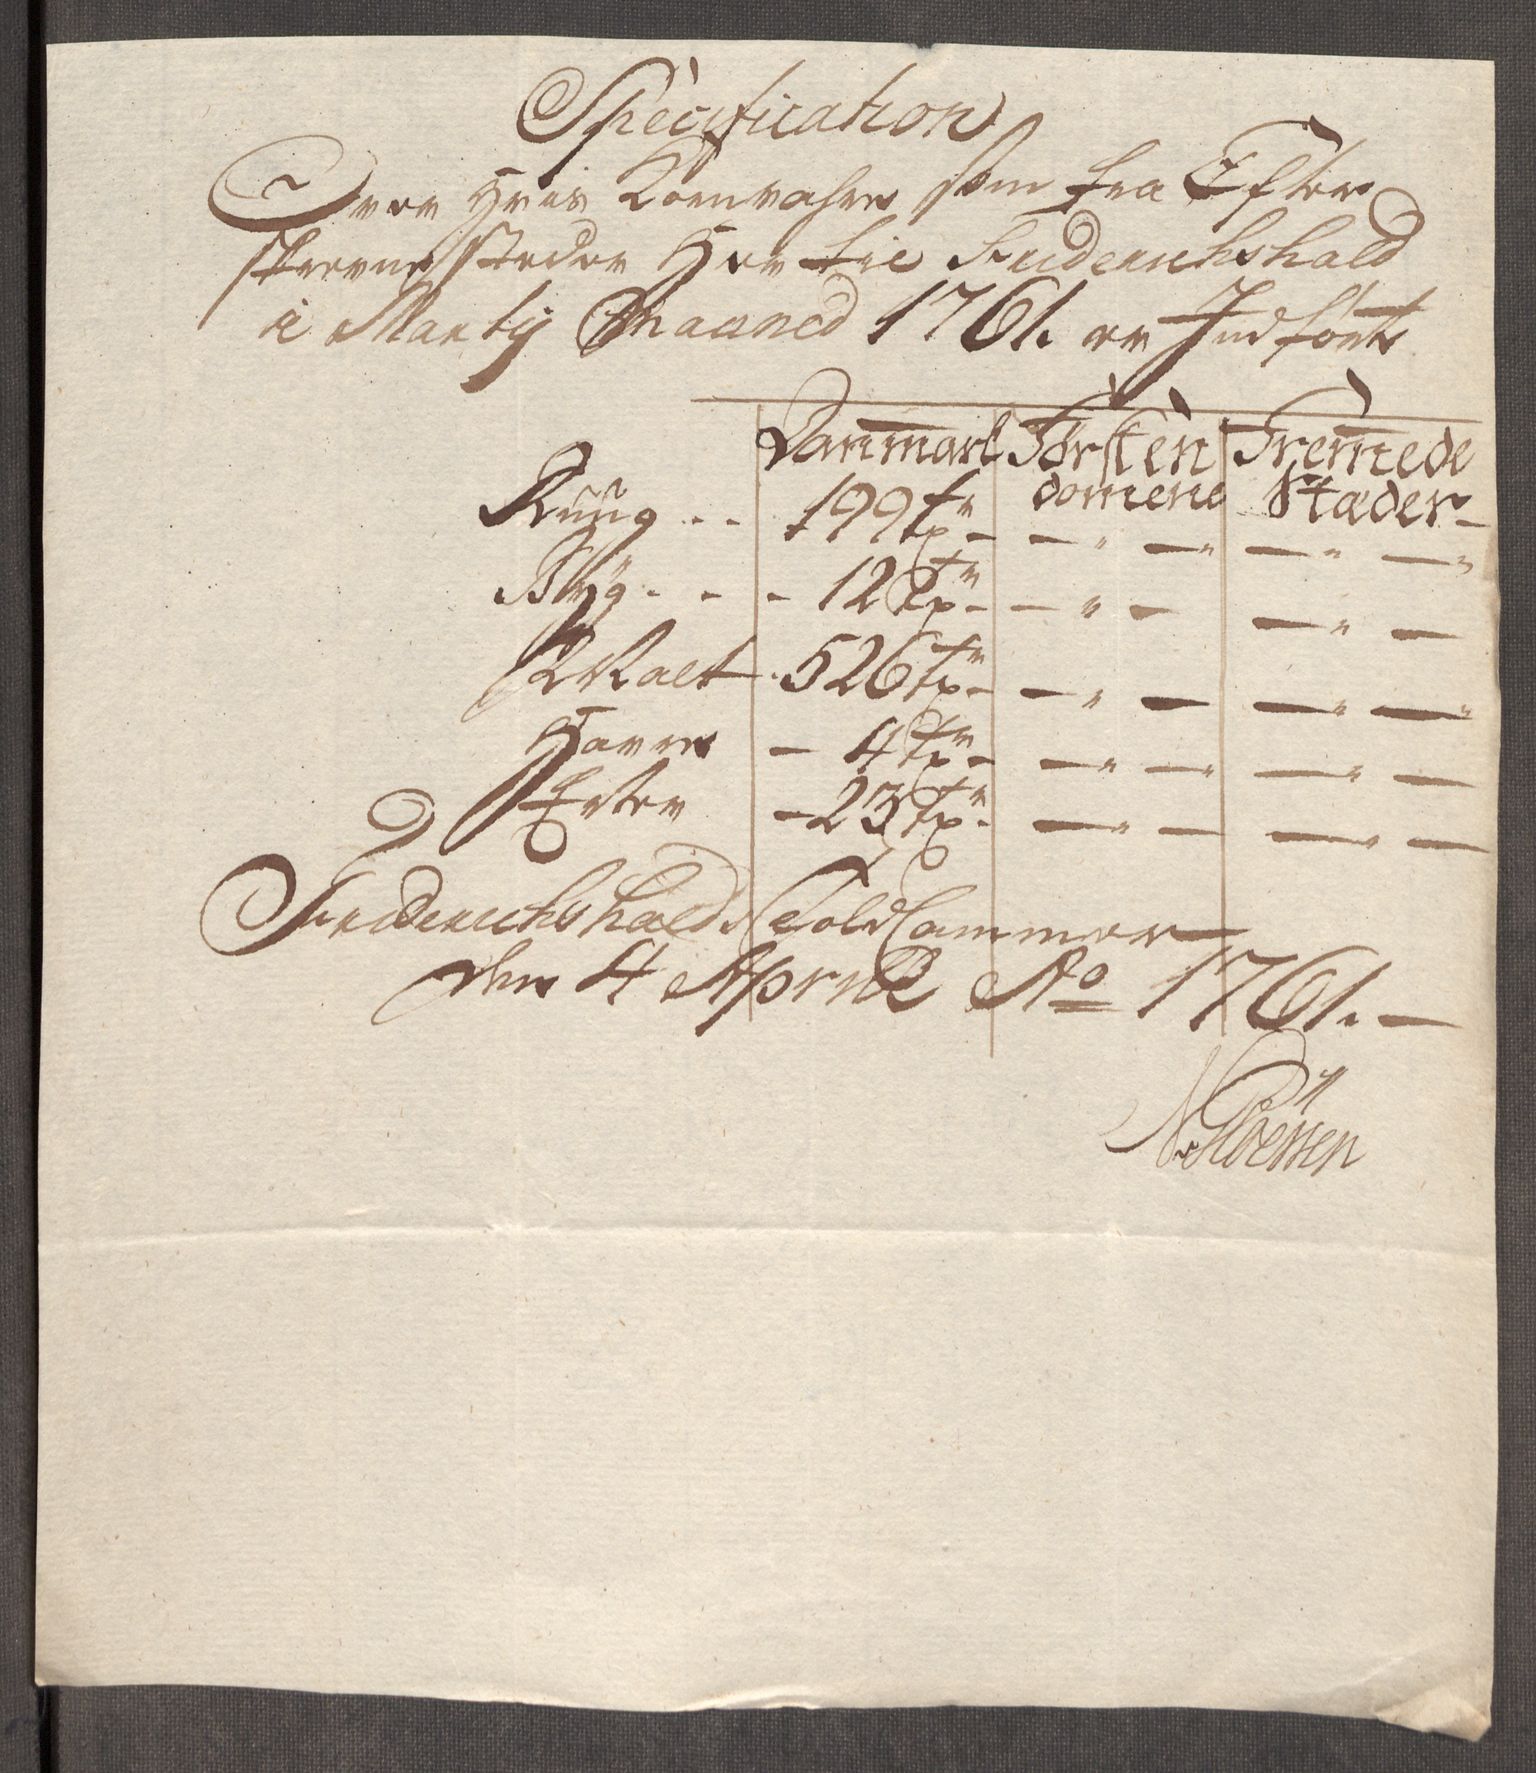 Specification
Over Hvis Kornvahre som fra Efter
skrevne Stæder Her til Friderichshald
i Marty Maaned 1761. er Indført
Danmark Førsten Fremede
domene Stæder
Rúúg .. 199 tr — " — " — " — "
Býg . . - 12 tr — " — — " —
Malt . 526 tr — " — — " — "
Havre — 4 tr — " — " — " —
Erter — 23 tr — " — — " —
Friderichshalds Told Cammer
den 4 April Ao 1761. —